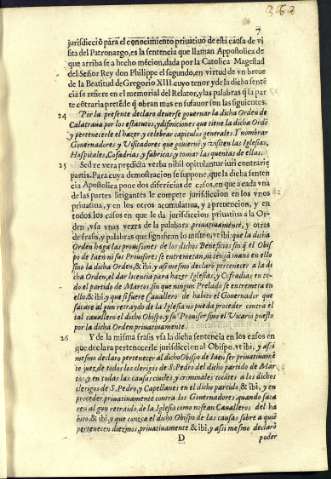 363
7
jurisdicció para el conocimiento priuatiuo de esta causa de vi
sita del Patronazgo, es la sentencia que llaman Appostolica de
que arriba se a hecho mécion, dada por la Catolica Magestad
del Señor Rey don Philippe el segundo, en virtud de vn breue
de la Beatitud de Gregorio XIII. cuyo tenor y de la dicha senten
cia se refiere en el memorial del Relator, y las palabras q la par
te contraria pretéde q obran mas en su fauor son las siguientes.
24 Por la presente declaro deuerse gouernar la dicha Orden de
Calatraua por los estatutos, y difiniciones que tiene la dicha Ordé
y pertenecerle el hazer y celebrar capitulos generales. Y nombrar
Gouernadores y Visitadores que gouierné y visiten las Iglesias,
Hospitales, Cofadrias y fabricas, y tomar las quentas de ellos.
25 Sed re vera prædicta verba nihil opitulantur iuri contrariæ
partis. Para cuya demostracion se suppone, que la dicha senten
cia Appostolica pone dos diferécias de casos, en que a cada vna
de las partes litigantes le compete jurisdiccion en los vnos
priuatiua, y en los otros acumulatiua, y a preuencion, y en
todos los casos en que le da jurisdiccion priuatiua a la Or-
den, vsa vnas vezes de la palabra priuatiuamente, y otras
de frasis, y palabras que significan lo mismo, vt ibi: que la dicha
Orden haga las prouisiones de los dichos Beneficios sin q el Obis
po de Iaen ni sus Prouisores se entremetan, ni tengá mano en ello
sino la dicha Orden, & ibi, y asi mesmo declaró pertenecer a la di
cha Orden, el dar licencia para hazer Iglesias, y Cofradias en to-
do el partido de Martos, sin que ningun Prelado se entremeta en
ello & ibi, y que si fuere Cauallero de habito el Gouernador que
sacare al que retraido de la Iglesia no pueda proceder contra el
tal cauallero el dicho Obispo, y su Prouisor sino el Vicario puesto
por la dicha Orden priuatiuamente.
26 Y de la misma frasis vsa la dicha sentencia en los casos en
que declara pertenecerle jurisdiccion al Obispo. vt ibi, y asi
mesmo declaro pertenecer al dicho Obispo de Iaen ser priuatiuamé
te juez de todos los clerigos de S. Pedro del dicho partido de Mar-
tos, y en todas las causas ciuiles y criminales tocátes a los dichos
clerigos de S. Pedro, y Capellanes en el dicho partido, & ibi, y en
proceder priuatiuamente contra los Gouernadores quando saca
ren al que retraido de la Iglesia como no sean Caualleros del ha
bito, & ibi, y que conozca el dicho Obispo de las causas sobre a quié
pertenecen diezmos, priuatiuamente & ibi, y asi mesmo declaró
D
poder